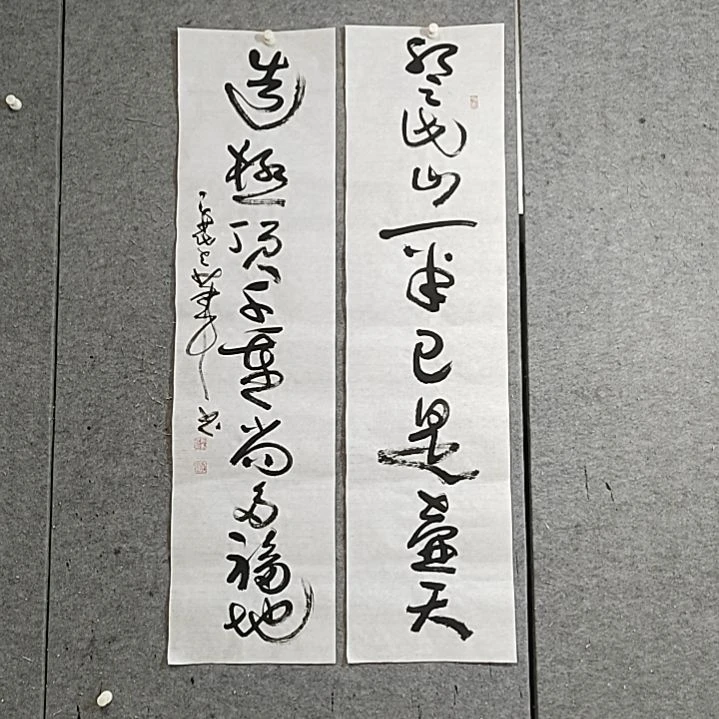 登此山一半已是壺天
造极顶千重尚多福地
书